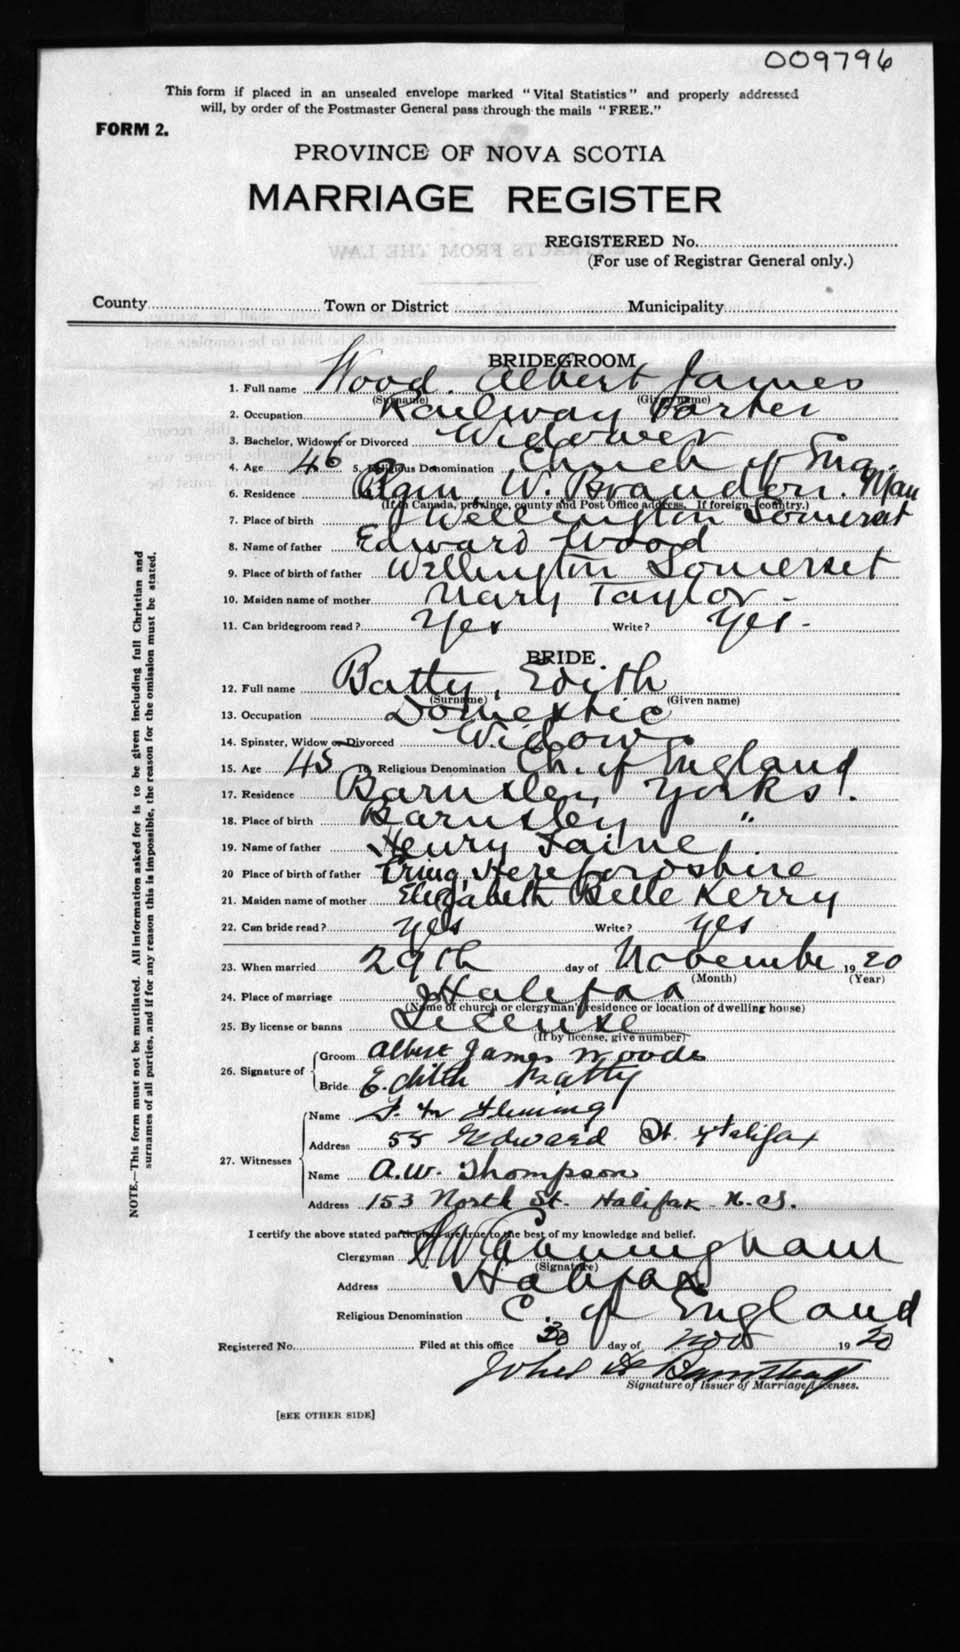 009796
This form if placed in an unsealed envelope marked "Vital Statistics" and properly addressed
will, by order of the Postmaster General pass through the mails "FREE."
FORM 2.
PROVINCE OF NOVA SCOTIA
MARRIAGE REGISTER
REGISTERED No.
(For use of Registrar General only.)
County Town or District Municipality
BRIDEGROOM
1. Full name Wood. Albert James
(Surname) (Given name)
2. Occupation Railway Porter
3. Bachelor, Widower or Divorced Widower
4. Age 46 5. Religious Denomination Church of Eng.
6. Residence W. Brandon. Man
(If in Canada, province, county and Post Office address. If foreign—country.)
7. Place of birth Wellington Somerset
8. Name of father Edward Wood
9. Place of birth of father Wellington Somerset
10. Maiden name of mother Mary Taylor -
11. Can bridegroom read? Yes Write? Yes -
BRIDE.
12. Full name Batty, Edith
(Surname) (Given name)
13. Occupation Domestic
14. Spinster, Widow or Divorced Widow
15. Age 45 16. Religious Denomination Ch. of England
17. Residence Barnsley Yorks.
18. Place of birth Barnsley "
19. Name of father Henry
20 Place of birth of father Tring, Herefordshire
21. Maiden name of mother Elizabeth Belle Kerry
22. Can bride read? Yes Write? yes
23. When married 29th day of November 1920
(Month) (Year)
24. Place of marriage Halifax
(Name of church or clergyman's residence or location of dwelling house)
25. By license or banns License
(If by license, give number)
26. Signature of
Groom Albert James Woods
Bride Edith Batty
27. Witnesses
Name Fleming
Address 55 Edward St. Halifax
Name A.W. Thompson
Address 153 North St. Halifax N.S.
I certify the above stated particulars are true to the best of my knowledge and belief.
Clergyman Cunningham
(Signature)
Address Halifax
Religious Denomination C. of England
Registered No. Filed at this office 30 day of Nov 1920
John
Signature of Issuer of Marriage Licenses.
[SEE OTHER SIDE]
NOTE.—This form must not be mutilated. All information asked for is to be given including full Christian and
surnames of all parties, and if for any reason this is impossible, the reason for the omission must be stated.